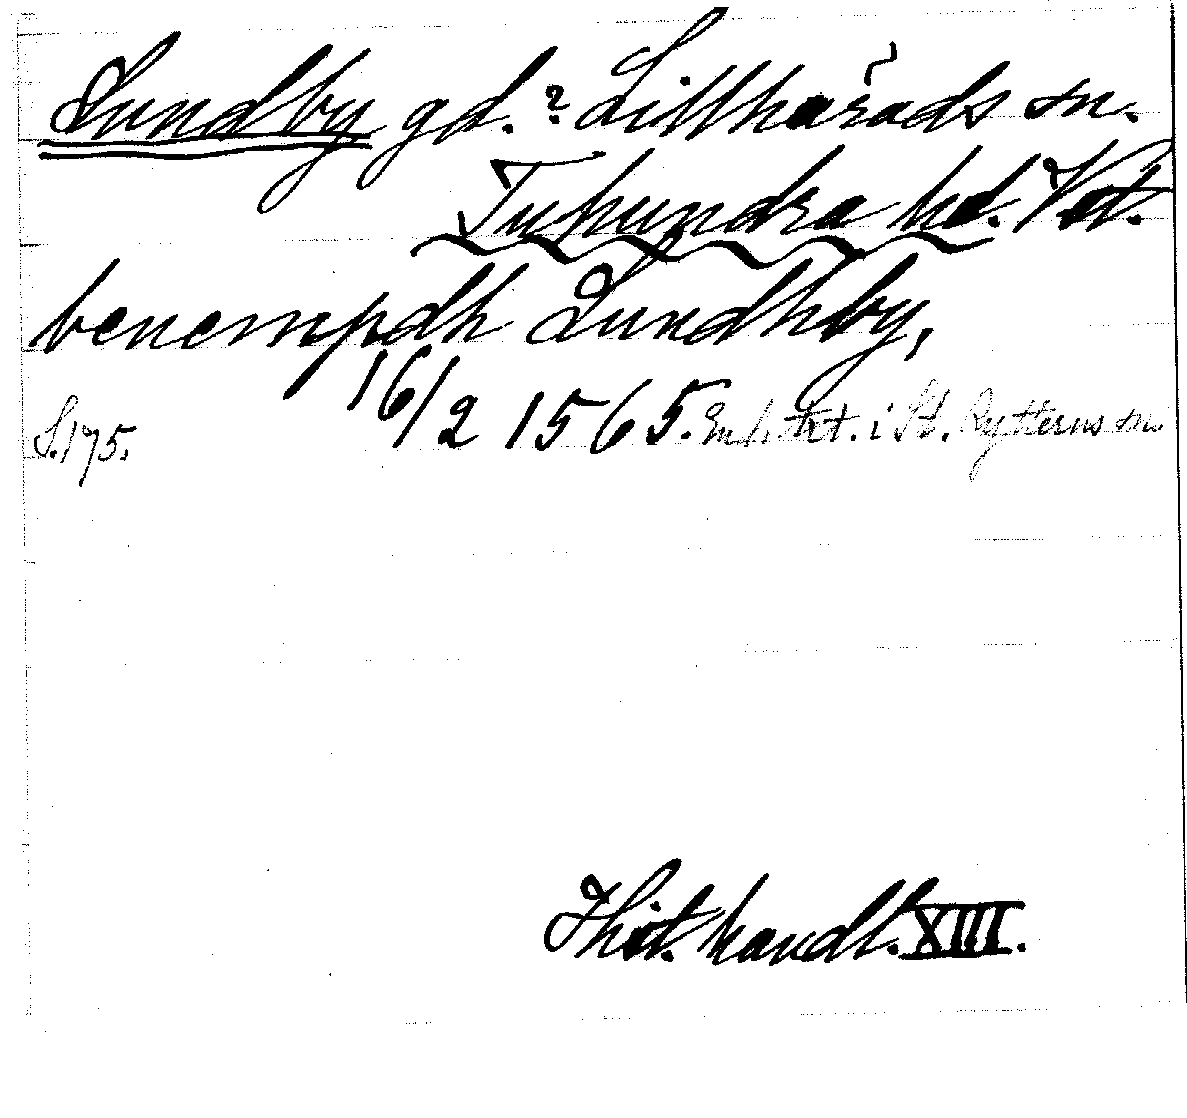 Lundby gd.? Lillhärads sn.
Tuhundra hd. Vstm.
benempdh Lundhby,
16/2 1565. Enl. txt. i St. Rytterns sn.
S. 175.
Hist. handl. XIII.